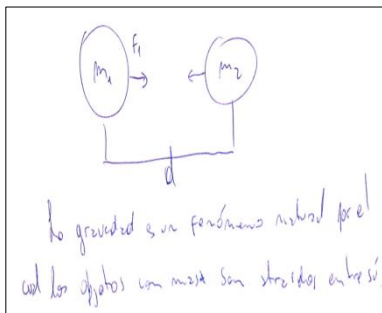 F₁
m₁
m₂
d
La gravedad es un fenómeno natural por el
cual los objetos con masa son atraidos entre sí.